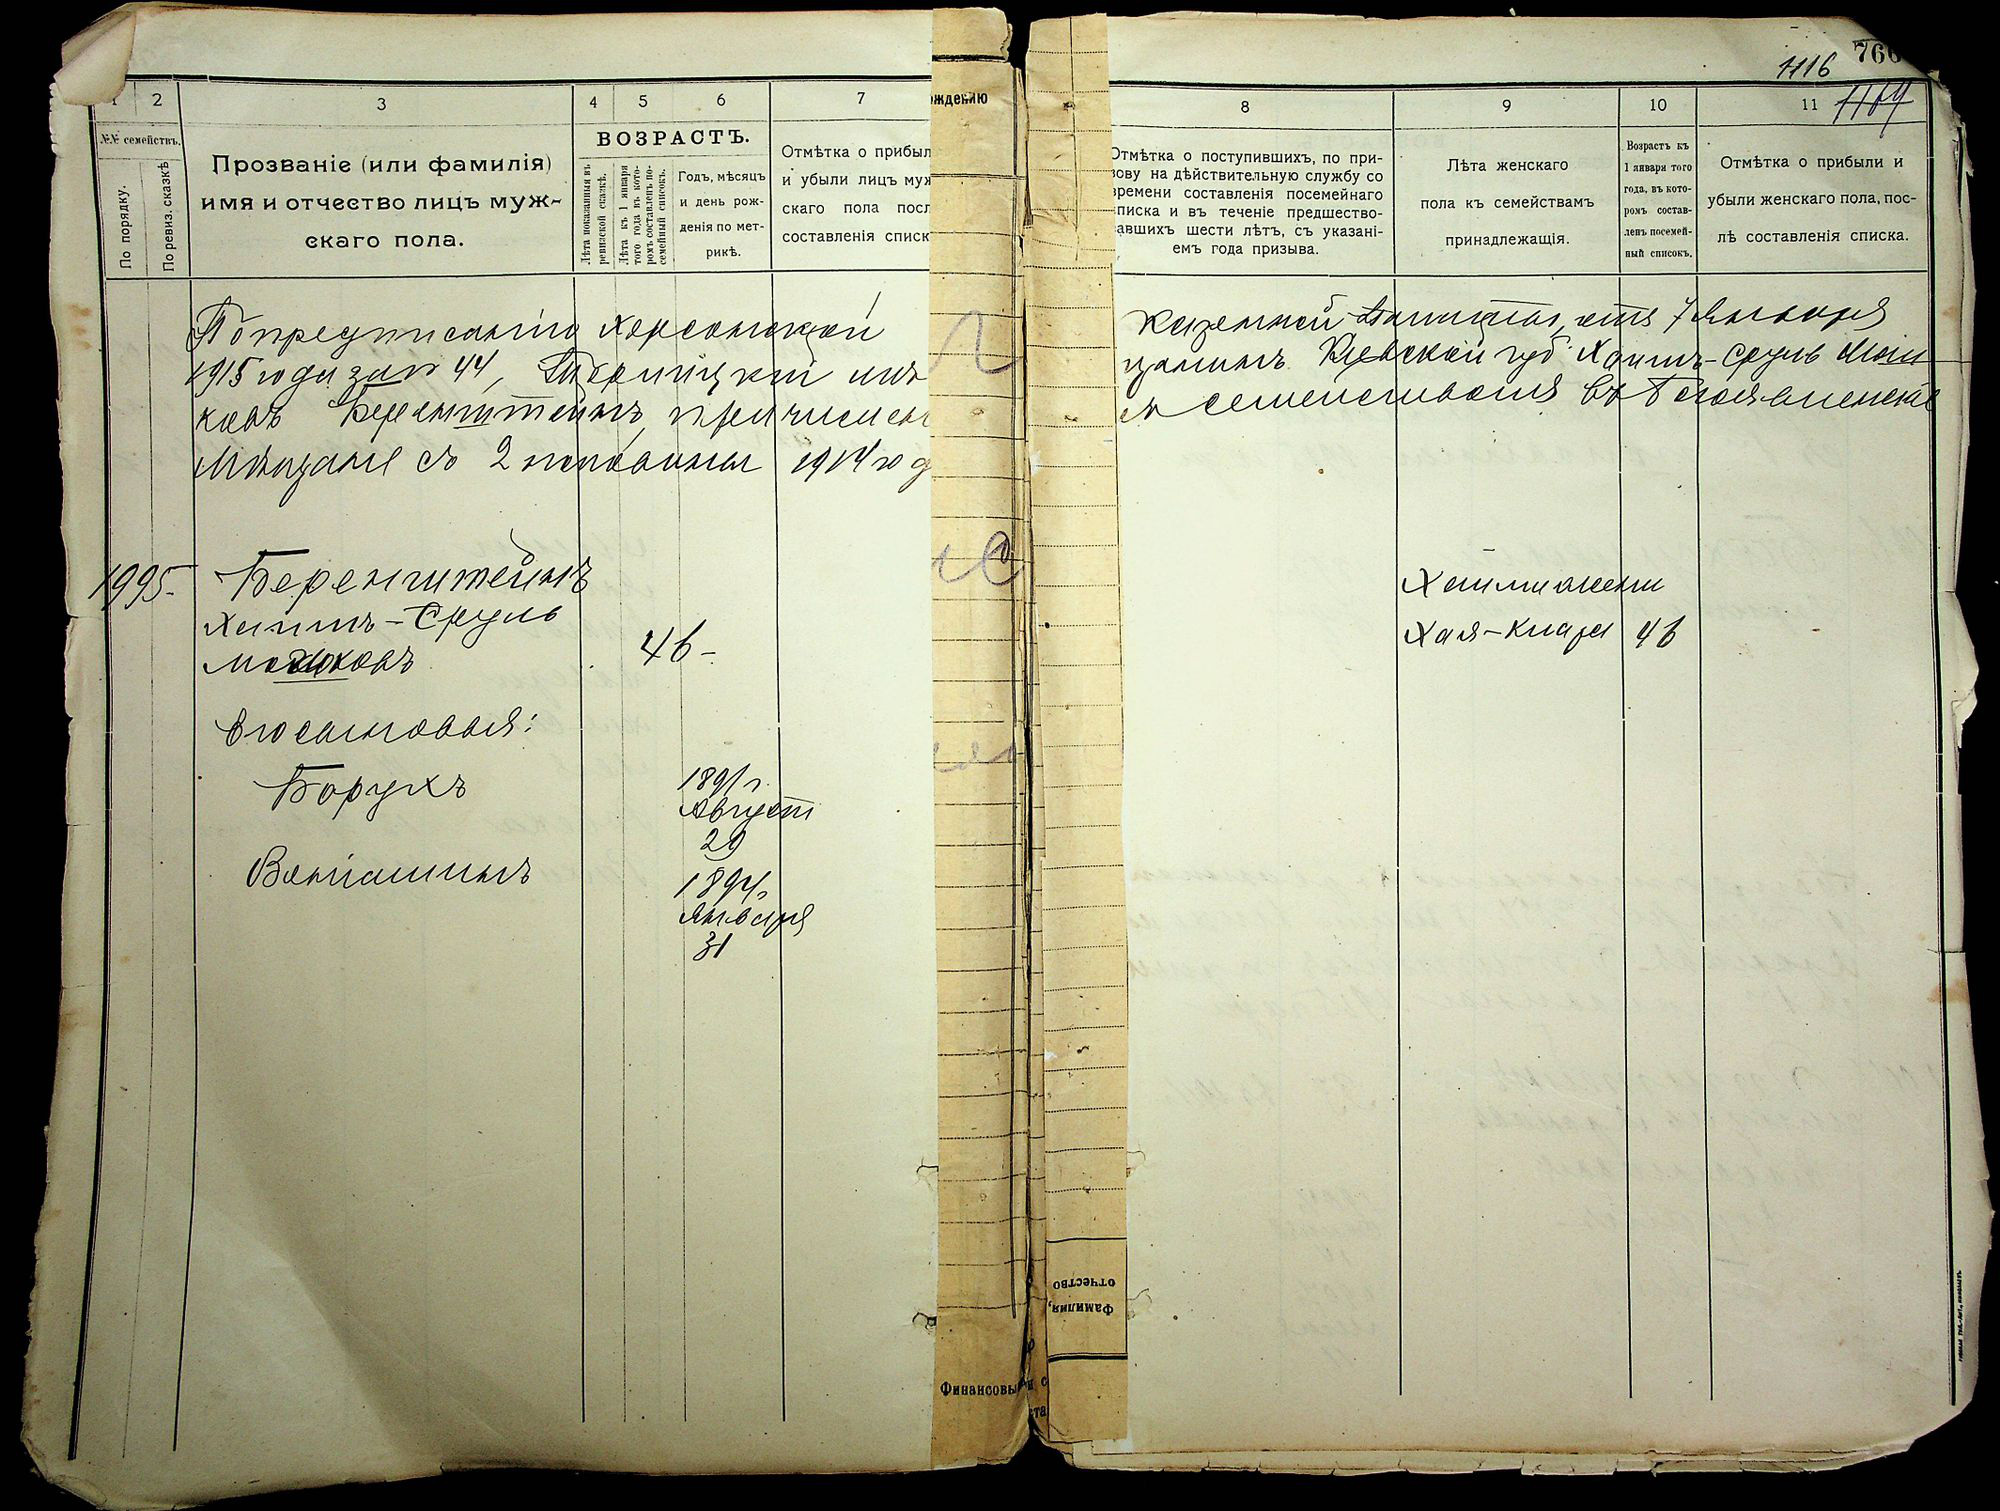 1116
766
1164
1
2
3
4
5
6
7
№№ семействъ.
По порядку.
По ревиз. сказкѣ
Прозваніе (или фамилія)
имя и отчество лицъ муж-
скаго пола.
ВОЗРАСТЪ.
Лѣта показанныя въ
ревизской сказкѣ.
Лѣта къ 1 января
того года въ кото-
ромъ составленъ по-
семейный списокъ.
Годъ, мѣсяцъ
и день рож-
денія по мет-
рикѣ.
Отмѣтка о прибыл
и убыли лицъ муж
скаго пола посл
составленія списк
ождению
8
9
10
11
Отмѣтка о поступившихъ, по при-
зову на дѣйствительную службу со
времени составленія посемейнаго
списка и въ теченіе предшество-
вавшихъ шести лѣтъ, съ указані-
емъ года призыва.
Лѣта женскаго
пола къ семействамъ
принадлежащія.
Возрастъ къ
1 января того
года, въ кото-
ромъ состав-
ленъ посемей-
ный списокъ.
Отмѣтка о прибыли и
убыли женскаго пола, пос-
лѣ составленія списка.
По предписанію Херсонской Казенной Палаты, отъ 7 Января
1915 года за № 44, мѣ щанинъ Кіевской губ. Хаимъ-Сруль Мош
ковъ Беренштейнъ, причислен семействомъ въ
Мѣщане съ 2 половины 1914 год
1995.
Беренштейнъ
Хаимъ-Сруль
Мошковъ
46
Хаима жена
Хая-Клара 46
Его сыновья:
Борухъ
1891 г.
Август
29
Веніаминъ
1894 г.
Января
31
отчество
Фамилия,
Финансовы